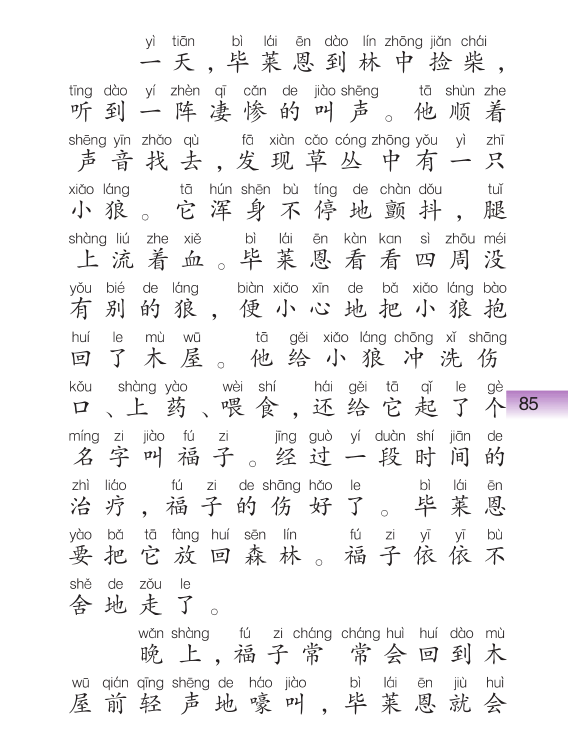 yì tiān bì lái ēn dào lín zhōng jiǎn chái
一天，毕莱恩到林中捡柴，
tīng dào yí zhèn qī cǎn de jiào shēng tā shùn zhe
听到一阵凄惨的叫声。他顺着
shēng yīn zhǎo qù fā xiàn cǎo cóng zhōng yǒu yì zhī
声音找去，发现草丛中有一只
xiǎo láng tā hún shēn bù tíng de chàn dǒu tuǐ
小狼。它浑身不停地颤抖，腿
shàng liú zhe xiě bì lái ēn kàn kan sì zhōu méi
上流着血。毕莱恩看看四周没
yǒu bié de láng biàn xiǎo xīn de bǎ xiǎo láng bào
有别的狼，便小心地把小狼抱
huí le mù wū tā gěi xiǎo láng chōng xǐ shāng
回了木屋。他给小狼冲洗伤
kǒu shàng yào wèi shí hái gěi tā qǐ le gè
口、上药、喂食，还给它起了个
85
míng zi jiào fú zi jīng guò yí duàn shí jiān de
名字叫福子。经过一段时间的
zhì liáo fú zi de shāng hǎo le bì lái ēn
治疗，福子的伤好了。毕莱恩
yào bǎ tā fàng huí sēn lín fú zi yī yī bù
要把它放回森林。福子依依不
shě de zǒu le
舍地走了。
wǎn shàng fú zi cháng cháng huì huí dào mù
晚上，福子常 常会回到木
wū qián qīng shēng de háo jiào bì lái ēn jiù huì
屋前轻声地嚎叫，毕莱恩就会